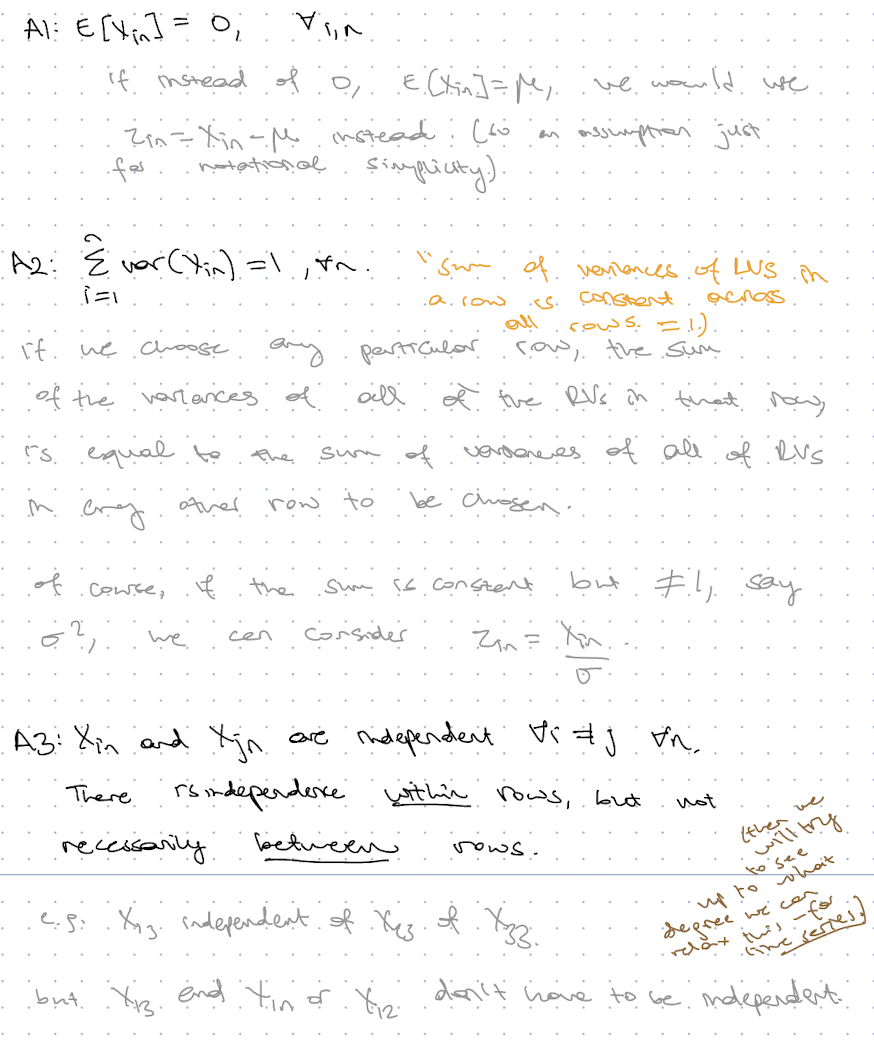 A1: E[Xin] = 0, ∀ i,n
if instead of 0, E[Xin]=μ, we would use
Zin = Xin - μ instead. (so an assumption just
for notational simplicity.)
A2: n∑i=1 var(Xin) = 1, ∀n.
"sum of variances of RVs in
a row is constant across
all rows. = 1.)
if we choose any particular row, the sum
of the variances of all of the RVs in that row,
is equal to the sum of variances of all of RVs
in any other row to be chosen.
of course, if the sum is constant but ≠1, say
σ², we can consider Zin = Xin/σ .
A3: Xin and Xjn are independent ∀i≠j ∀n.
There is independence within rows, but not
necessarily between rows.
(then we
will try
to see
up to what
degree we can
relax this – for
time series.)
e.g: X13 independent of X23 of X33.
but X13 and X1n or X12 don't have to be independent.